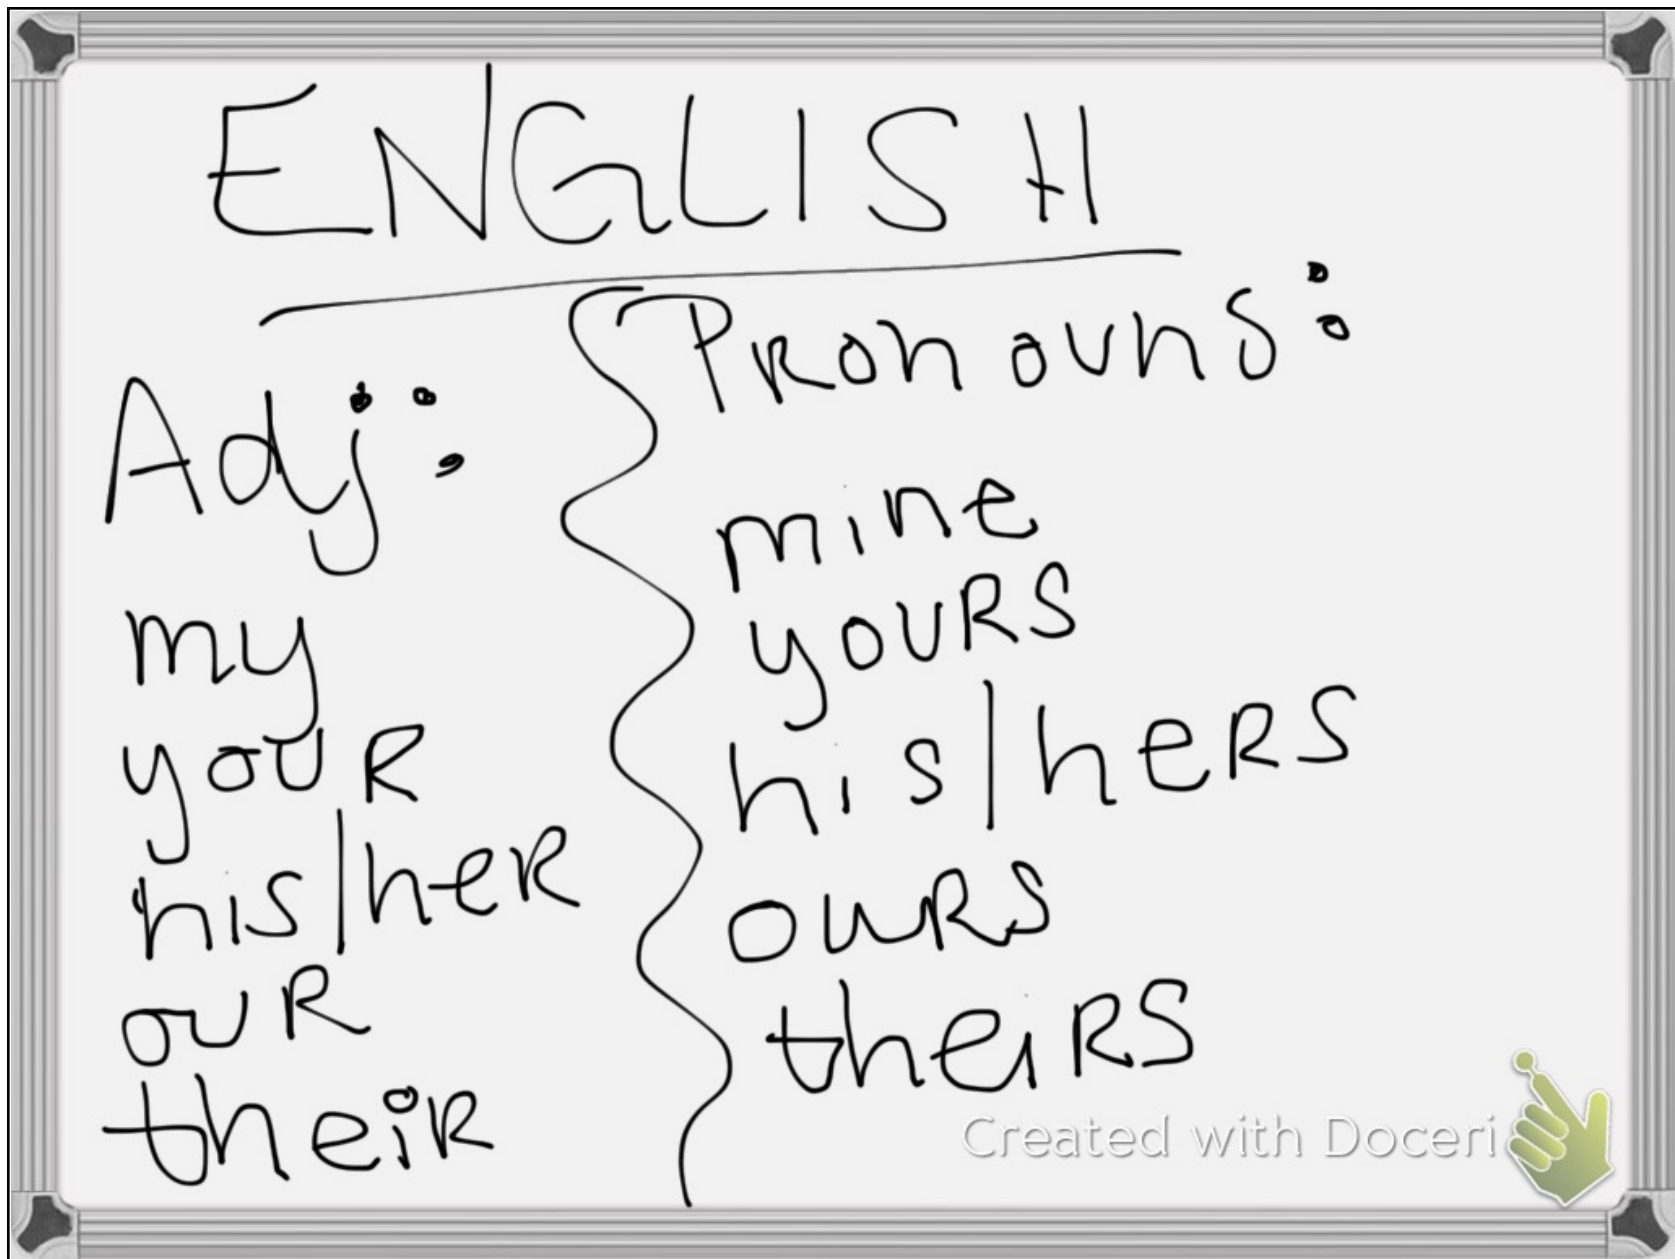 ENGLISH
Adj:
my
youR
his/heR
ouR
theiR
PRonouns:
mine
youRS
his/heRS
ouRS
theiRS
Created with Doceri